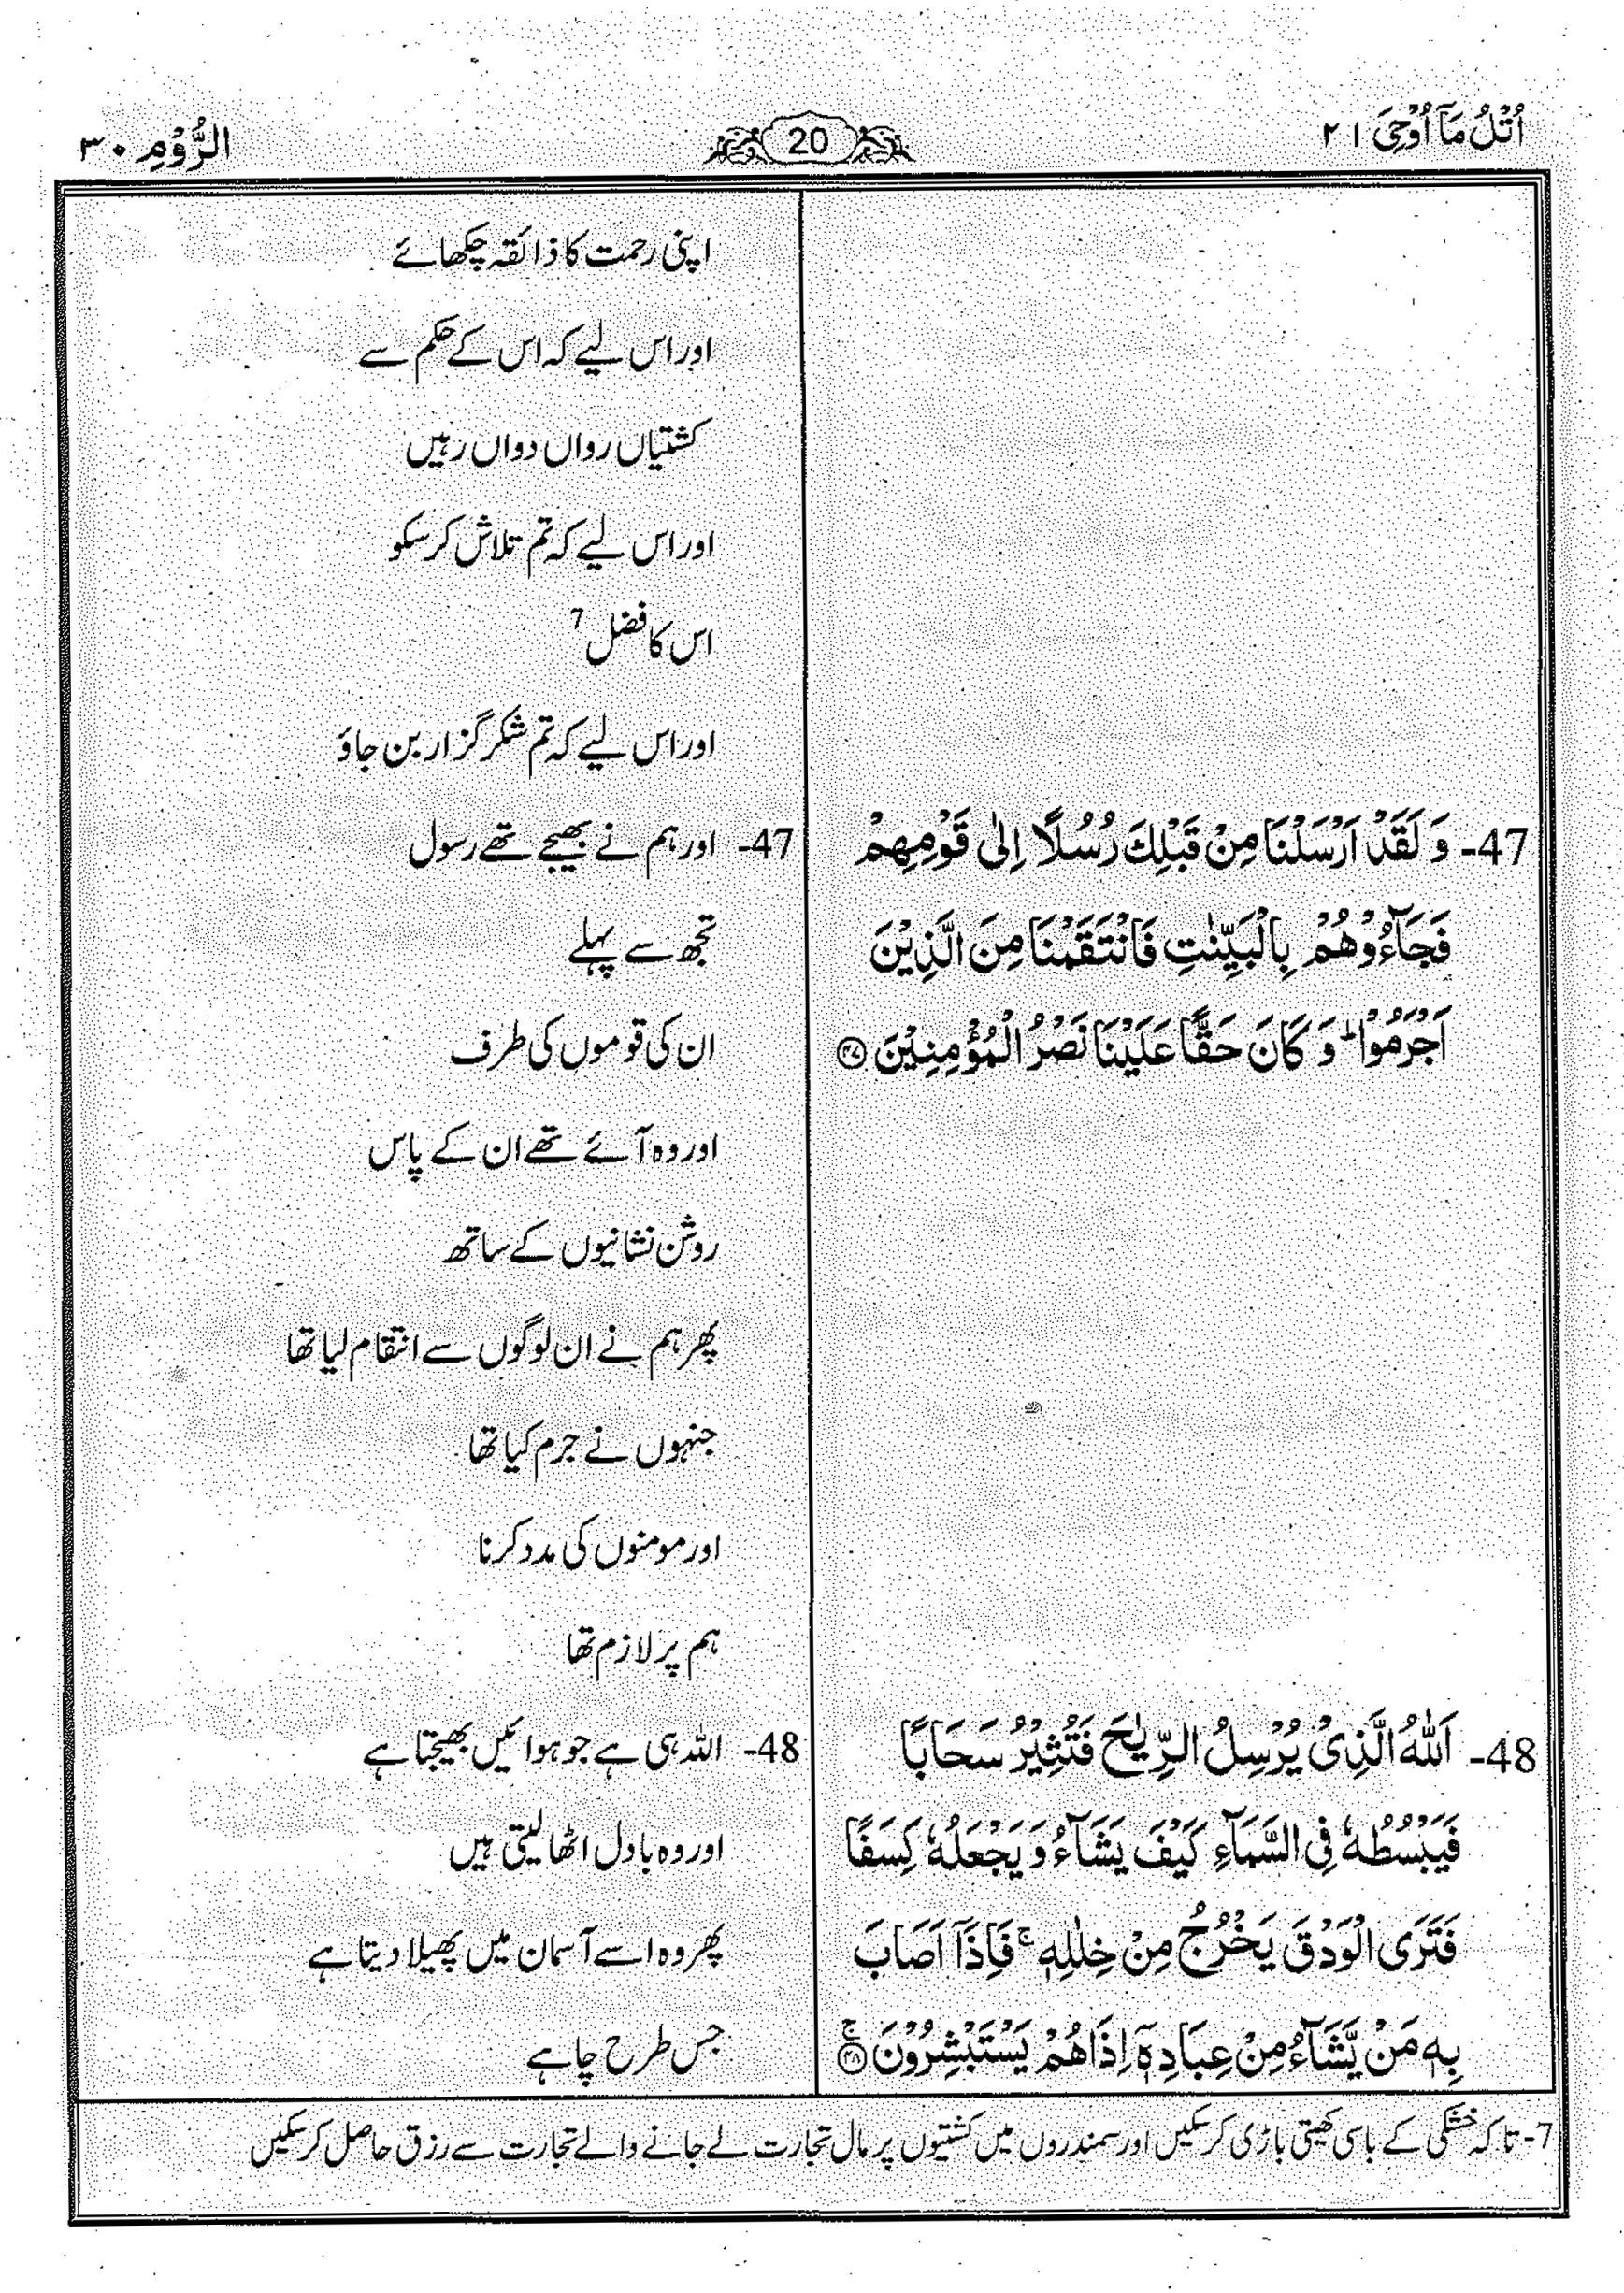 اُتْلُ مَآ اُوْحِیَ ۲۱
20
الرُّوْمِ ۳۰
اپنی رحمت کا ذائقہ چکھائے
اور اس لیے کہ اس کے حکم سے
کشتیاں رواں دواں رہیں
اور اس لیے کہ تم تلاش کر سکو
اس کا فضل 7
اور اس لیے کہ تم شکر گزار بن جاؤ
47- وَ لَقَدْ اَرْسَلْنَا مِنْ قَبْلِكَ رُسُلًا اِلٰی قَوْمِهِمْ
فَجَآءُوْهُمْ بِالْبَیِّنٰتِ فَانْتَقَمْنَا مِنَ الَّذِیْنَ
اَجْرَمُوْا ؕ وَ كَانَ حَقًّا عَلَیْنَا نَصْرُ الْمُؤْمِنِیْنَ ۴۷
47- اور ہم نے بھیجے تھے رسول
تجھ سے پہلے
ان کی قوموں کی طرف
اور وہ آئے تھے ان کے پاس
روشن نشانیوں کے ساتھ
پھر ہم نے ان لوگوں سے انتقام لیا تھا
جنہوں نے جرم کیا تھا
اور مومنوں کی مدد کرنا
ہم پر لازم تھا
48- اَللّٰهُ الَّذِیْ یُرْسِلُ الرِّیٰحَ فَتُثِیْرُ سَحَابًا
فَیَبْسُطُهٗ فِی السَّمَآءِ كَیْفَ یَشَآءُ وَ یَجْعَلُهٗ كِسَفًا
فَتَرَی الْوَدْقَ یَخْرُجُ مِنْ خِلٰلِهٖ ۚ فَاِذَاۤ اَصَابَ
بِهٖ مَنْ یَّشَآءُ مِنْ عِبَادِهٖۤ اِذَا هُمْ یَسْتَبْشِرُوْنَ ۚ ۴۸
48- اللہ ہی ہے جو ہوائیں بھیجتا ہے
اور وہ بادل اٹھا لیتی ہیں
پھر وہ اسے آسمان میں پھیلا دیتا ہے
جس طرح چاہے
7- تاکہ خشکی کے باسی کھیتی باڑی کر سکیں اور سمندروں میں کشتیوں پر مال تجارت لے جانے والے تجارت سے رزق حاصل کر سکیں